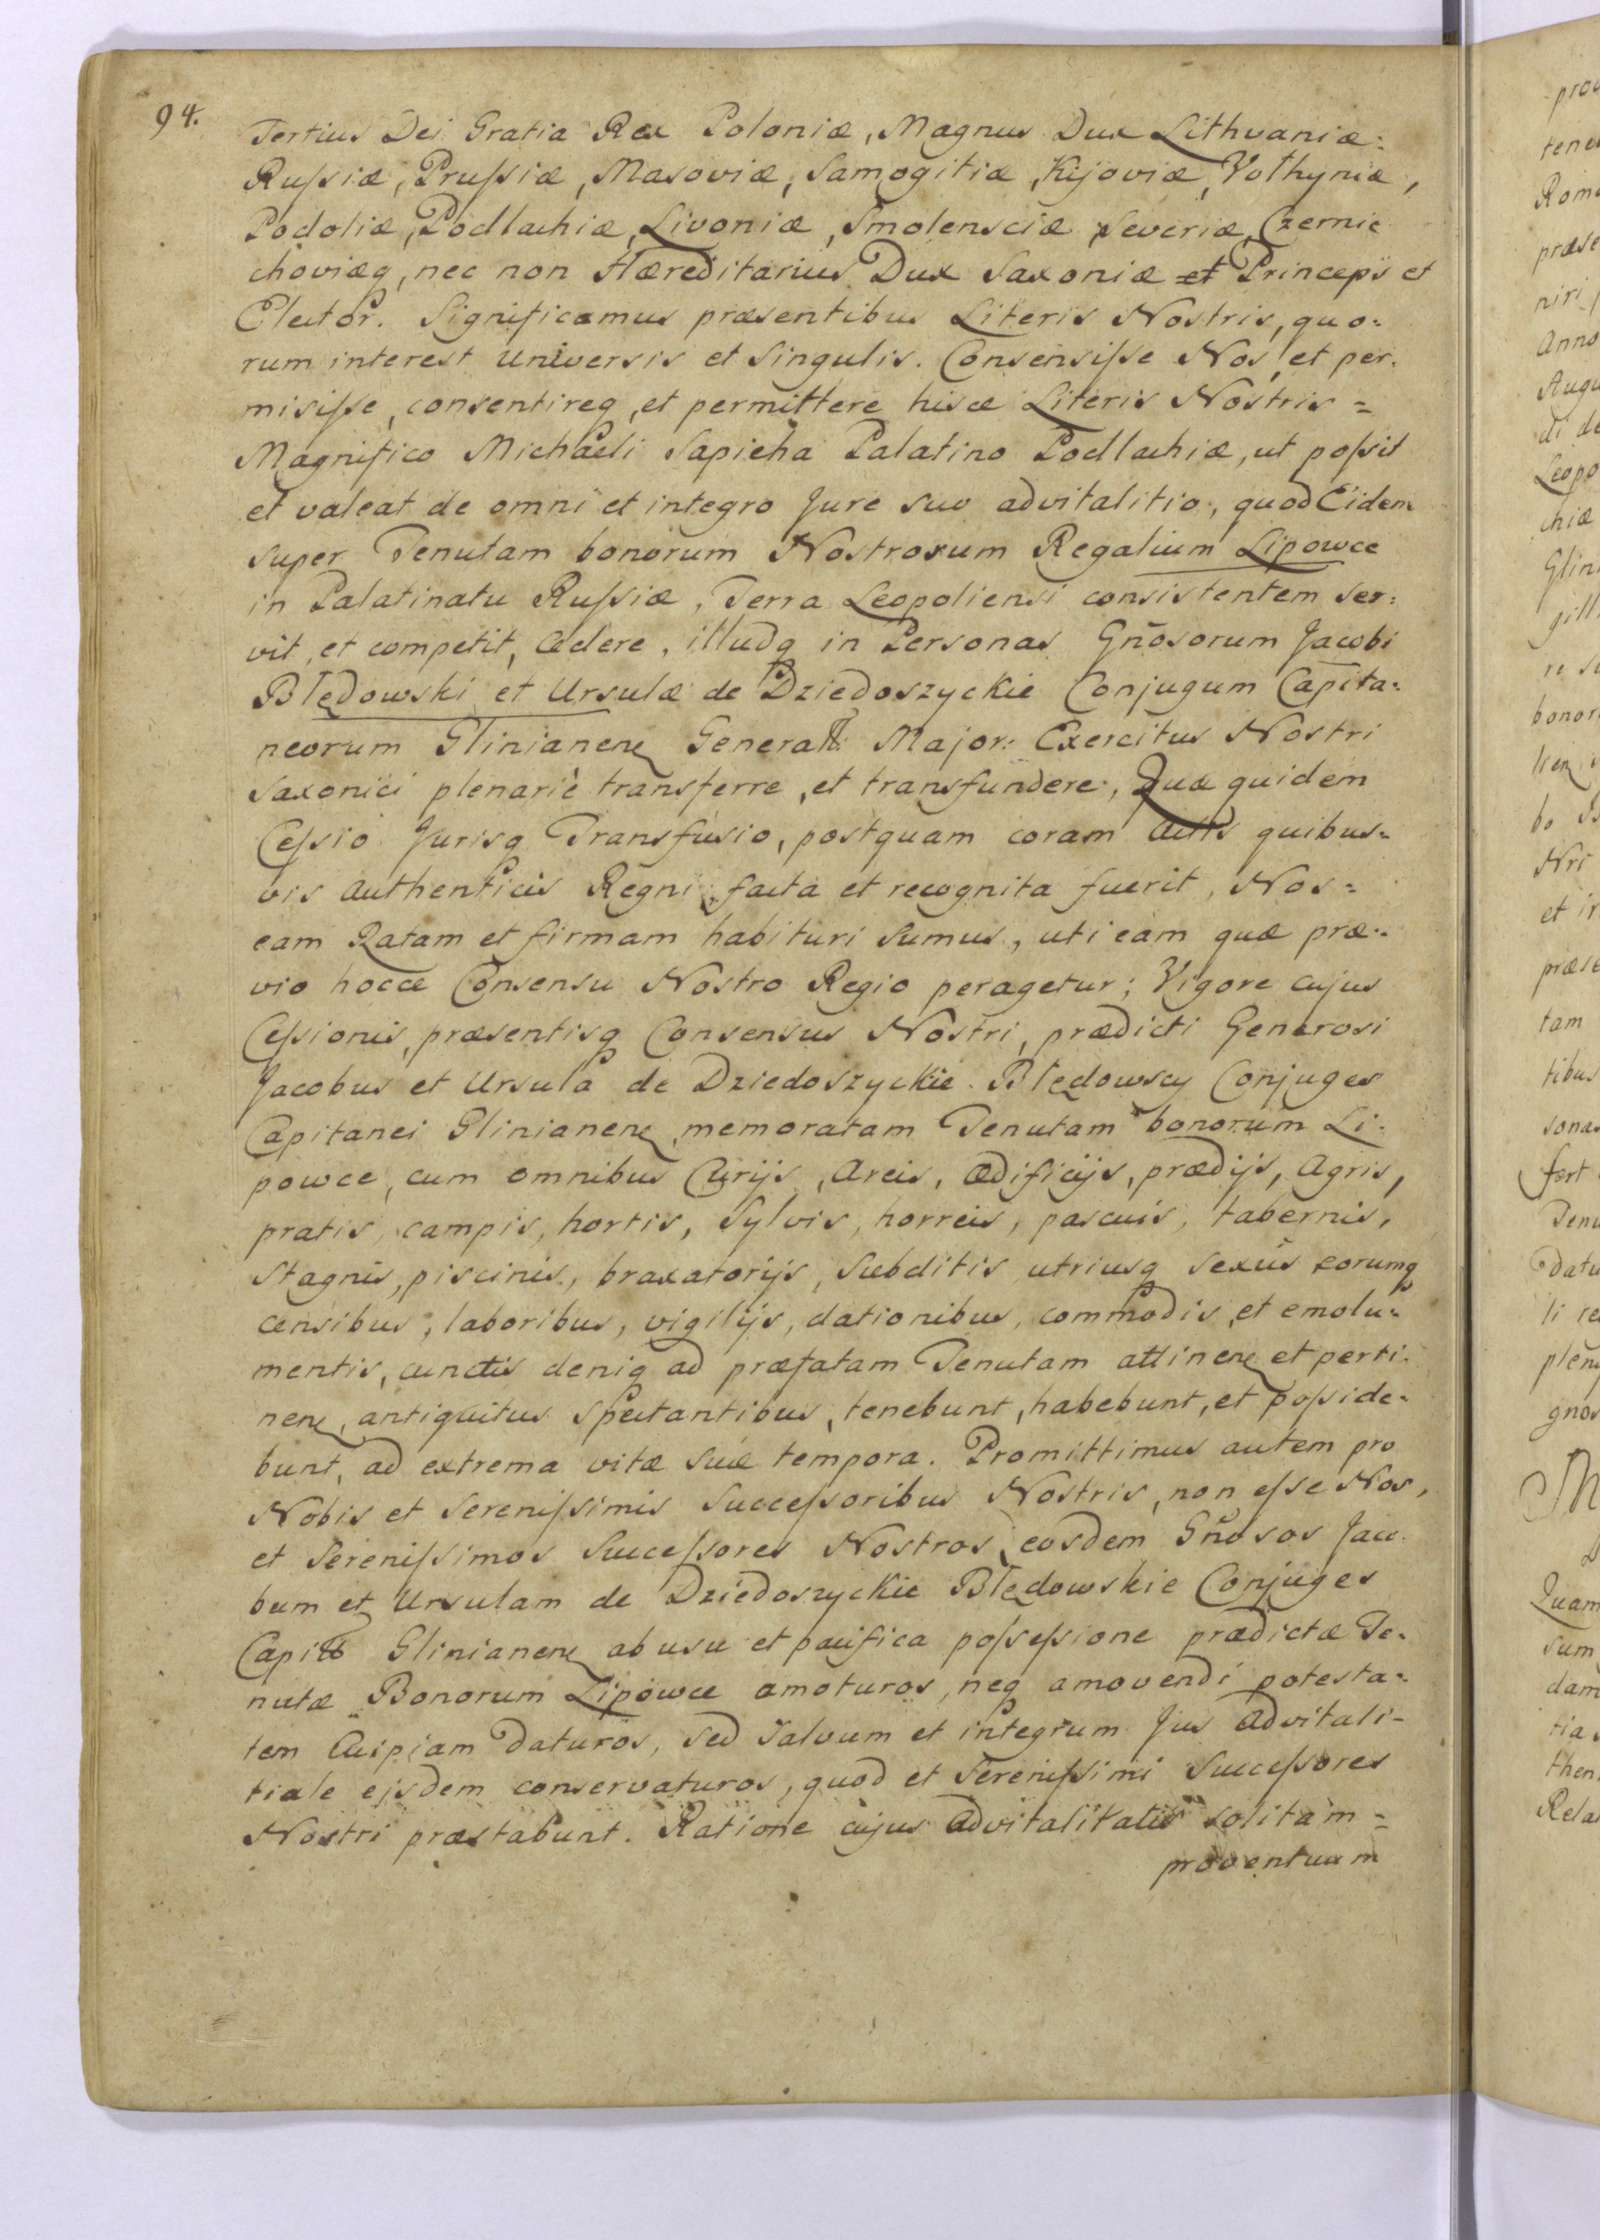 94.
Tertius Dei Gratia Rex Poloniæ, Magnus Dux Lithvaniæ:
Rufsiæ, Prufsiæ, Masoviæ, Samogitiæ, Kijoviæ, Volhyniæ,
Podoliæ, Podlachiæ, Livoniæ, Smolensciæ Severiæ, Czernie
choviæq, nec non Hæreditarius Dux Saxoniæ et Princeps et
Elector. Significamus præsentibus Literis Nostris, quo=
rum interest Universis et Singulis. Consensifse Nos, et per=
misifse, consentireq, et permittere hisce Literis Nostris =
Magnifico Michaeli Sapieha Palatino Podlachiæ, ut pofsit
et valeat de omni et integro Jure suo advitalitio, quod Eidem
super Tenutam bonorum Nostrorum Regalium Lipowce
in Palatinatu Rufsiæ, Terra Leopoliensi consistentem ser=
vit, et competit, Cedere, illudq in Personas Gnosorum Jacobi
Błędowski et Ursulæ de Dziedoszyckie Conjugum Capita=
neorum Glinianen Generall: Major: Exercitus Nostri
Saxonici plenariè transferre, et transfundere, Quæ quidem
Cefsio Jurisq Transfusio, postquam coram Actis quibus=
vis Authenticis Regni facta et recognita fuerit, Nos=
eam Ratam et firmam habituri Sumus, uti eam quæ præ=
vio hocce Consensu Nostro Regio peragetur; Vigore cujus
Cefsionis, præsentisq Consensus Nostri, prædicti Generosi
Jacobus et Ursula de Dziedoszyckie Błędowscy Conjuges
Capitanei Glinianen memoratam Tenutam bonorum Li=
powce, cum omnibus Curijs, Areis, Ædificijs, prædijs, Agris,
pratis, campis, hortis, Sylvis, horreis, pascuis, tabernis,
Stagnis, piscinis, braxatorijs, Subditis utriusq sexûs eorumq
censibus, laboribus, vigilijs, dationibus, commodis, et emolu=
mentis, cunctis deniq ad præfatam Tenutam attinen et perti=
nen, antiquitus Spectantibus, tenebunt, habebunt, et pofside=
bunt, ad extrema vitæ Suæ tempora. Promittimus autem pro
Nobis et Serenifsimis Succefsoribus Nostris, non efse Nos,
et Serenifsimos Succefsores Nostros, eosdem Gnosos Jaco
bum et Ursulam de Dziedoszyckie Błędowskie Conjuges
Capitt Glinianen ab usu et pacifica pofsefsione prædictæ Te=
nutæ Bonorum Lipowce amoturos, neq amovendi potesta=
tem Cuipiam daturos, Sed salvum et integrum Jus Advitali=
tiale ejsdem conservaturos, quod et Serenifsimi Succefsores
Nostri præstabunt. Ratione cujus Advitalitatis solitam =
proventuum